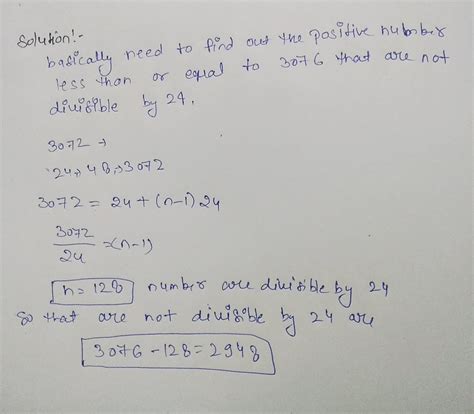 Solution!-
basically need to find out the positive number
less than or equal to 3076 that are not
divisible by 24.
3072 →
24, 48, → 3072
3072 = 24 + (n-1) 24
3072/24 = (n-1)
n = 128 number are divisible by 24
So that are not divisible by 24 are
3076 - 128 = 2948